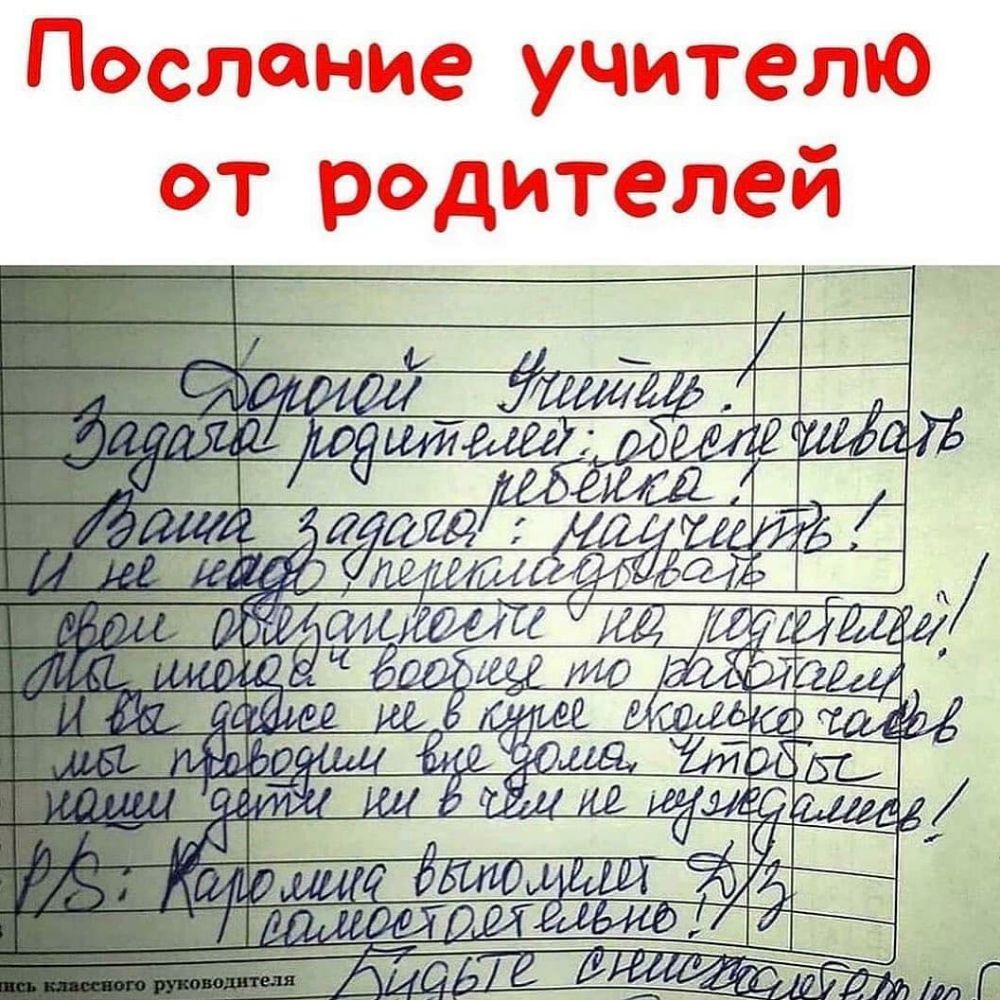 Послание учителю
от родителей
Дорогой Учитель!
Задача родителей: обеспечивать
ребёнка!
Ваша задача: научить!
И не надо перекладывать
свои обязанности на родителей!
Мы иногда "вообще то работаем
И вы даже не в курсе сколько часов
мы проводим вне дома, Чтобы
наши дети ни в чём не нуждались!
P/S: Каролина выполнет Д/З
самостоятельно!
ись классного руководителя
Будьте